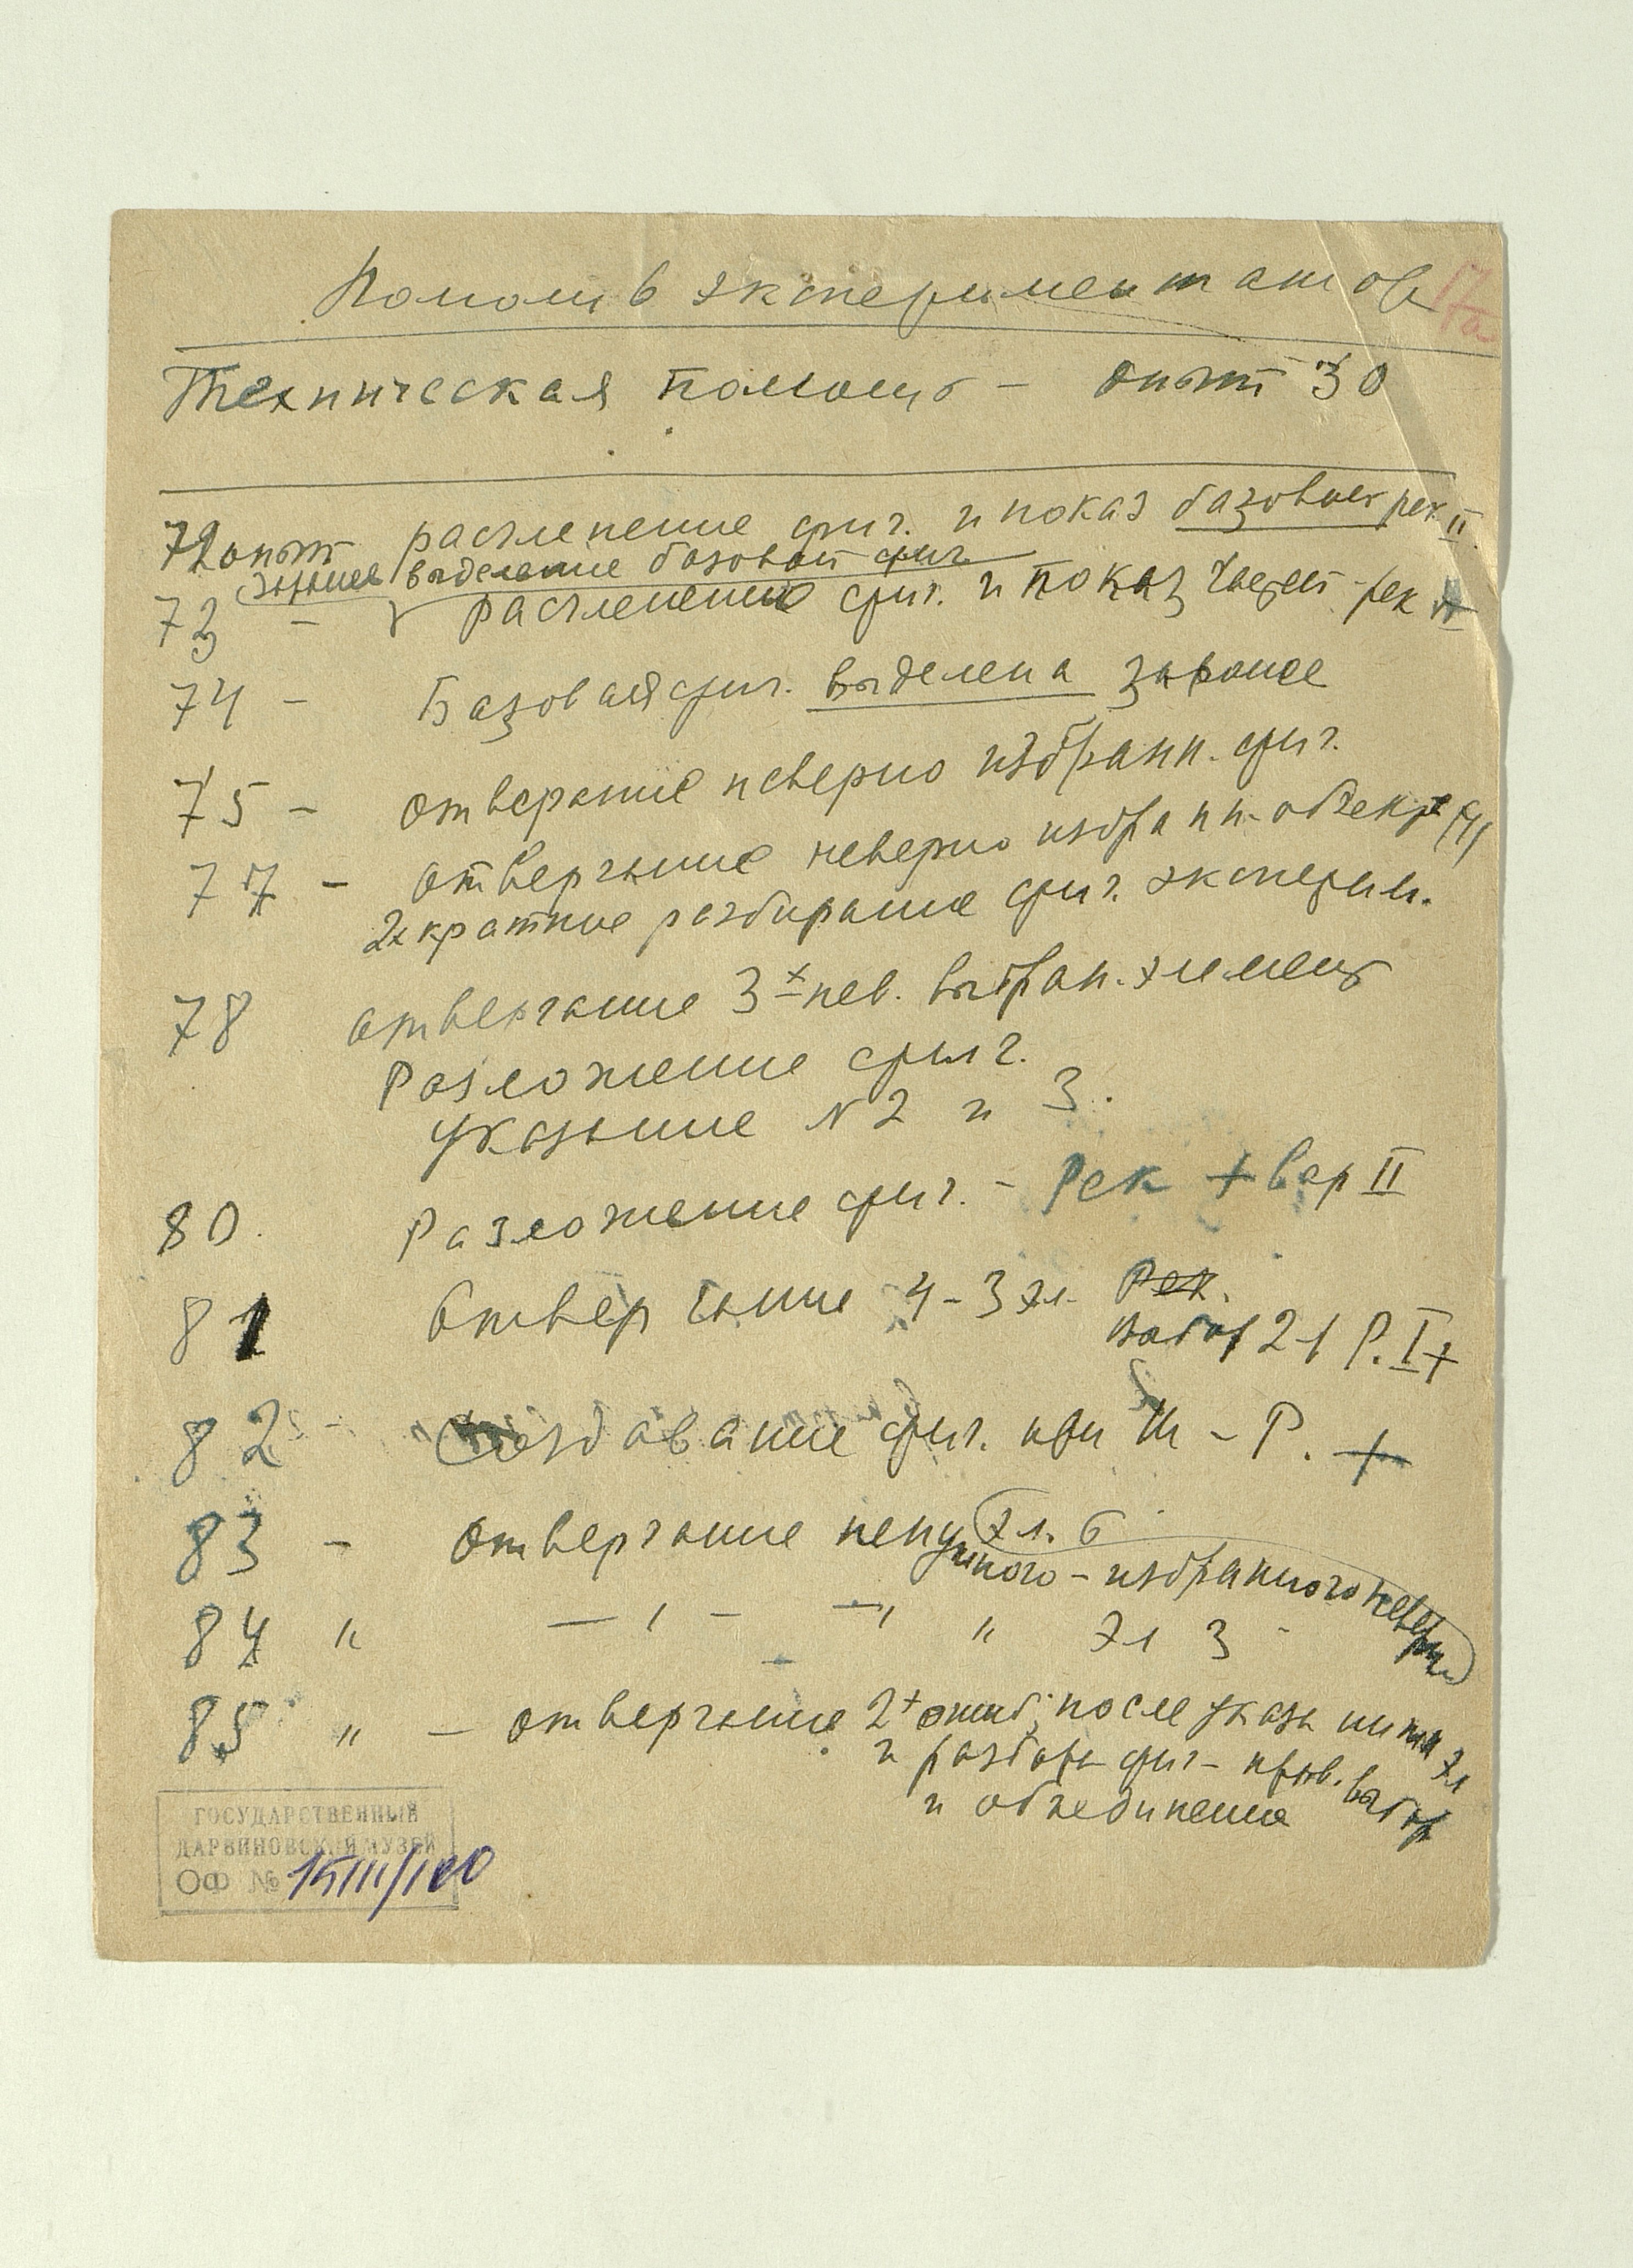 Помощь экспериментатор
17а
Техническая помощь – опыт 30
72 опыт расчленение фиг. и показ базовых рек II
заранее выделение базовой фиг.
73 – расчленение фиг. и показ частей – рек
74 – Базовая фиг. выделена заранее
75 – отвергание неверно избранн. фиг.
77 – отвергание неверно избранн. объекта (4)
2х кратное разбирание фиг. эксперим.
78 отвергание 3х нев. выбран. элемент
Разложение фиг.
указание N 2 и 3.
80. Разложение фиг. – Рек + вар II
81 Отвергание 4–3 эл. Рек.
21 Р. I +
82 – создавание фиг. при III – Р. +
83 – отвергание ненужного – избранного неверно
эл. 6
84 " — " — — " " эл 3 –
85 " – отвергание 2х ошиб. после указания эл
и разбора фиг – прав. выбор
и объединение
ГОСУДАРСТВЕННЫЙ
ДАРВИНОВСКИЙ МУЗЕЙ
ОФ № 15111/100